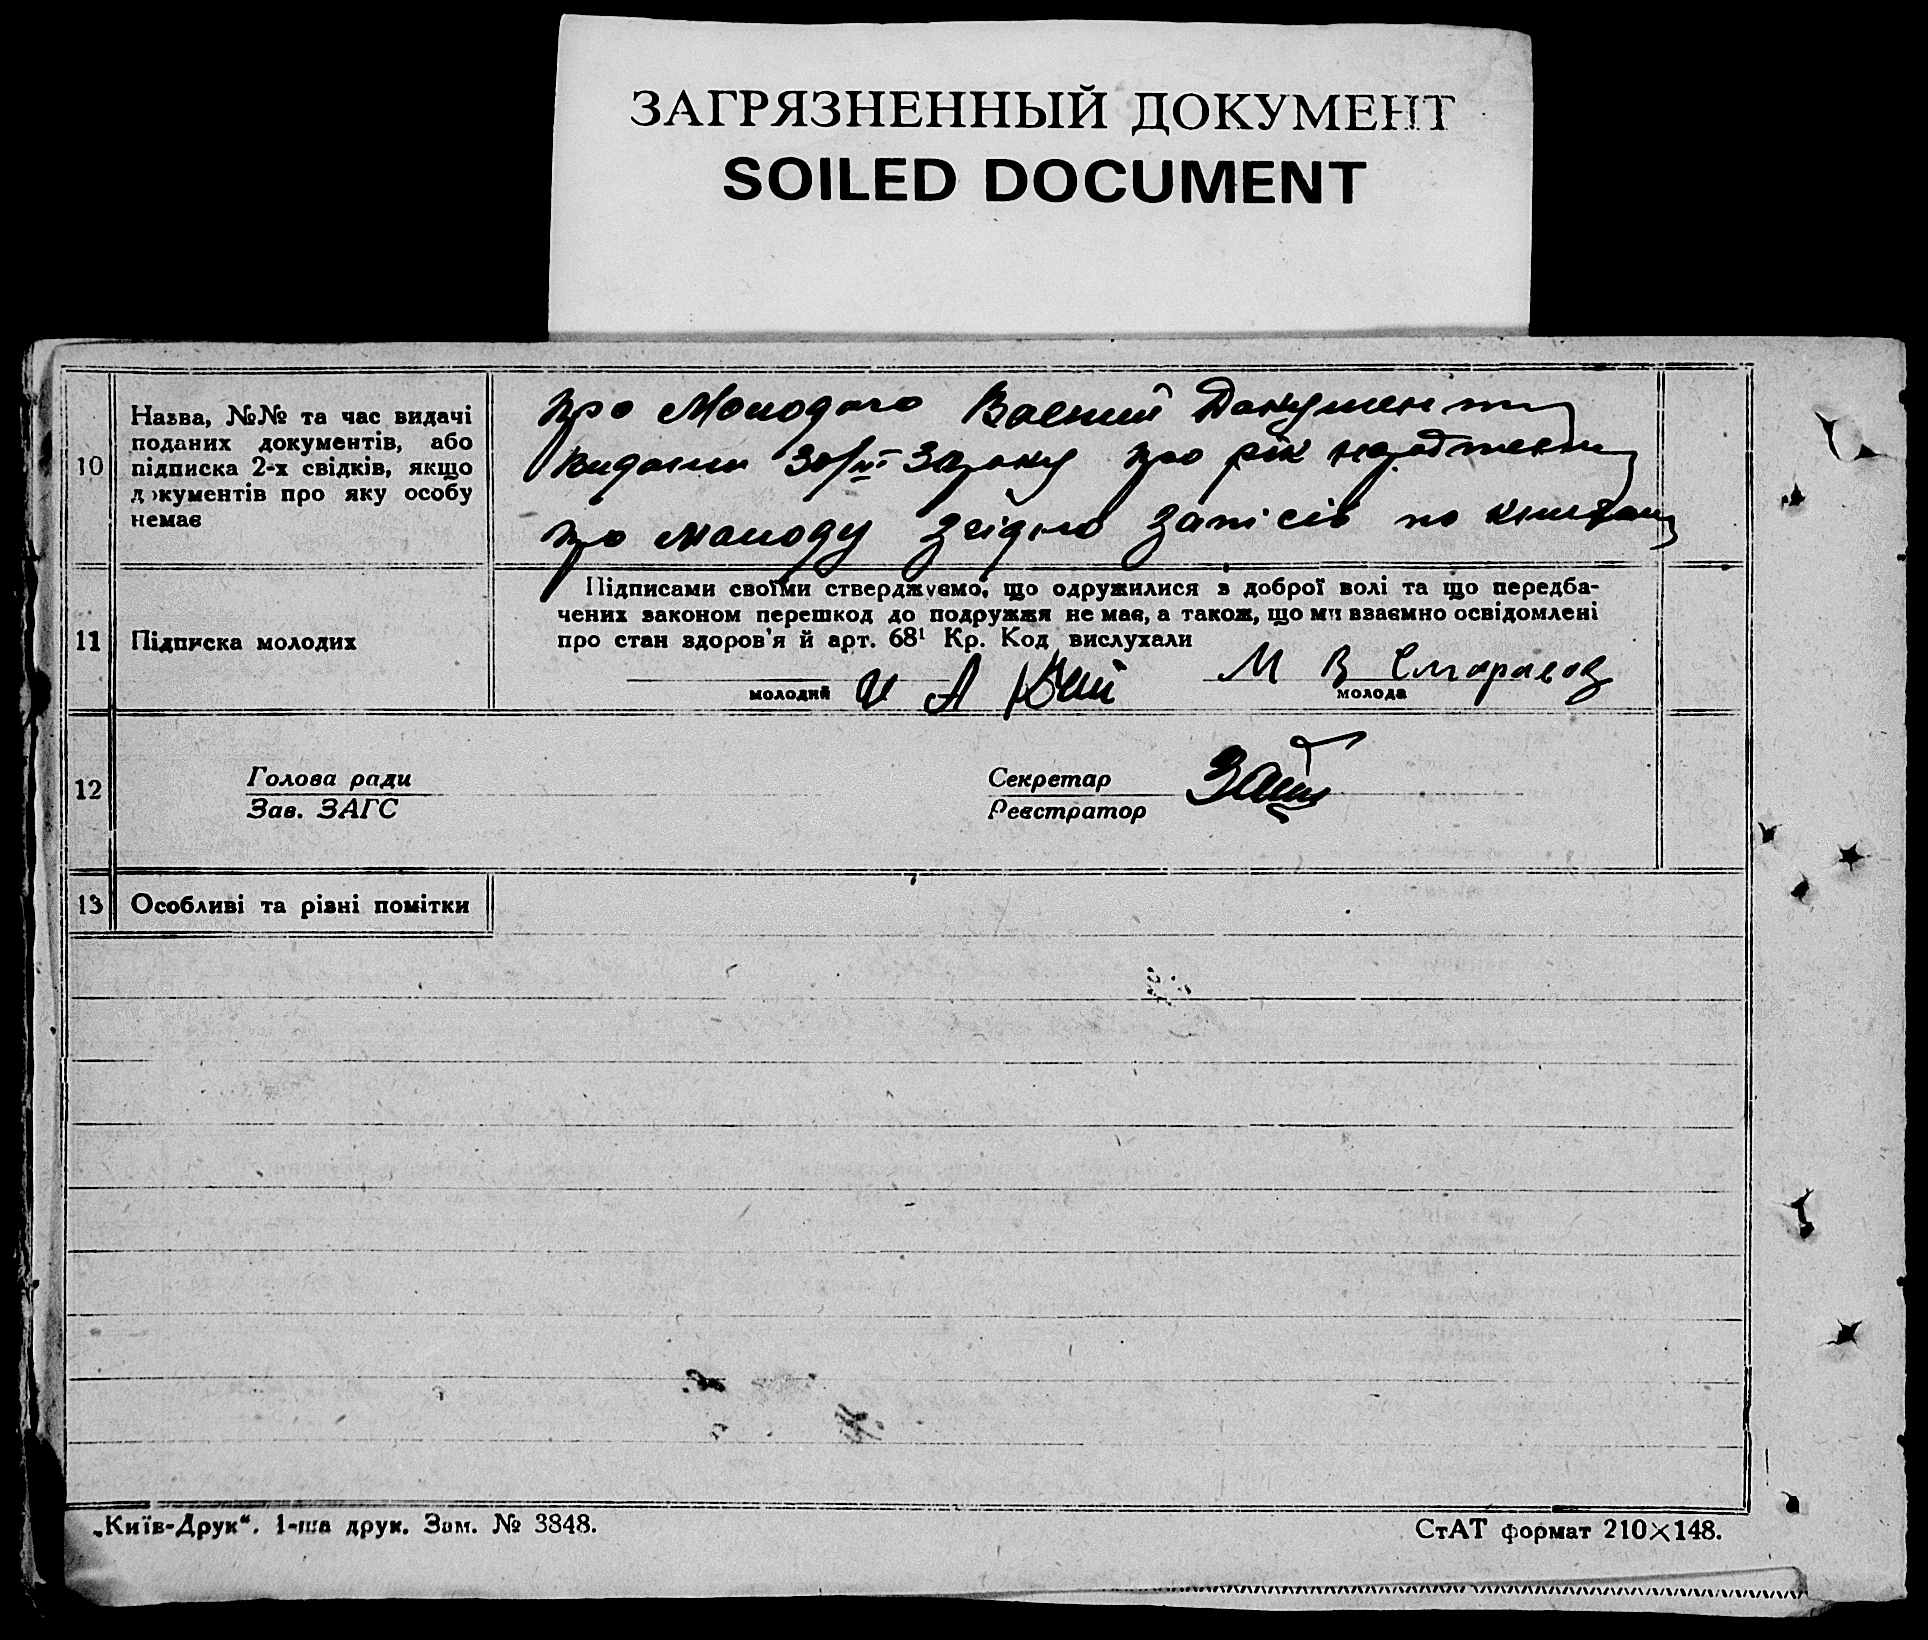 ЗАГРЯЗНЕННЫЙ ДОКУМЕНТ
SOILED DOCUMENT
10
Назва, №№ та час видачі
поданих документів, або
підписка 2-х свідків, якщо
документів про яку особу
немає
про Молодого Воєний Документ
видании 30/VI про рік народження
про молоду згідно записів по книгам
11
Підписка молодих
Підписами своїми стверджуємо, що одружилися з доброї волі та що передба-
чених законом перешкод до подружжя не має, а також, що ми взаємно освідомлені
про стан здоров'я й арт. 68¹ Кр. Код вислухали
молодий
И А
М В
молода
12
Голова ради
Зав. ЗАГС
Секретар
Реєстратор
13
Особливі та різні помітки
„Київ-Друк“. 1-ша друк. Зам. № 3848.
СтАТ формат 210×148.